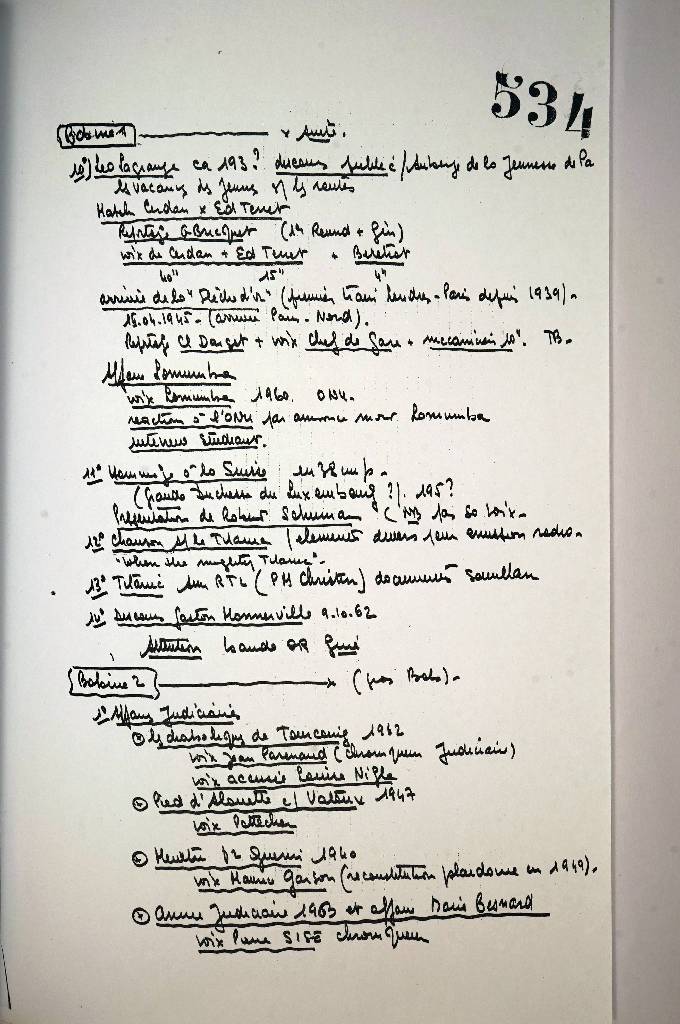 534
Bobine 1 x suite.
10°) Leo Lagrange ca 193? discours public / Auberge de la Jeunesse de Pa
les vacances des jeunes
Match Cerdan x Ed Tenet
Reptage G Bricquet (1er Round + Fin)
voix de Cerdan + Ed Tenet +
40" 15" 4"
arrivée de la "Flèche d'or" (premier train Londres-Paris depuis 1939).
15.04.1945 - (arrivée Paris-Nord).
Reptage Cl Darget + voix Chef de Gare + mecanicien 10". TB.
Affaire Lomumba
voix Lomumba 1960. ONU.
reaction à l'ONU par annonce mort Lomumba
interview Etudiant.
11° Hommage à la Suisse en 38 cm/s.
(Grande Duchesse du Luxembourg?). 195?
Présentation de Robert Schuman (NB pas sa voix.
12° Chanson s/ le Titanic / elements divers pour emission radio.
"When the mighty Titanic".
13° Titanic sur RTL (PH Christin) documents
14° Discours Gaston Monnerville 9.10.62
Attention bande OR
Bobine 2 x (gros Bob).
1° Affaires Judiciaires
les diaboliques de Tourcoing 1962
voix Jean (chroniqueur Judiciaire)
voix accusée Louise
Pied d'Alouette c/ 1947
voix Pottecher
1940
voix Maurice Garçon (reconstitution plaidoirie en 1949).
Annee Judiciaire 1963 et affaire Marie Besnard
voix Pierre chroniqueur